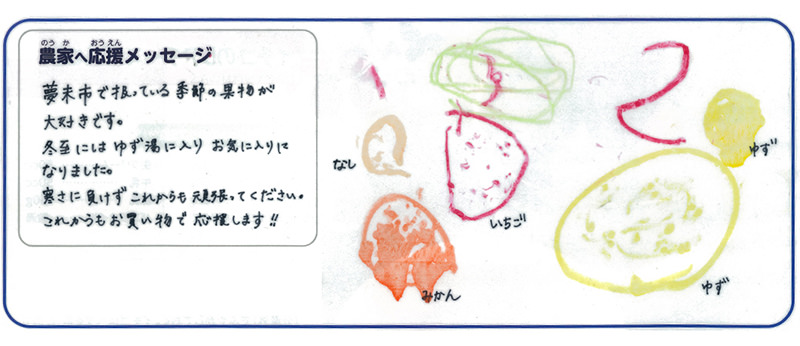 農家へ応援メッセージ
のうか
おうえん
夢未市で扱っている季節の果物が
大好きです。
冬至にはゆず湯に入りお気に入りに
なりました。
寒さに負けずこれからも頑張ってください。
これからもお買い物で応援します!!
なし
いちご
みかん
ゆず
ゆず